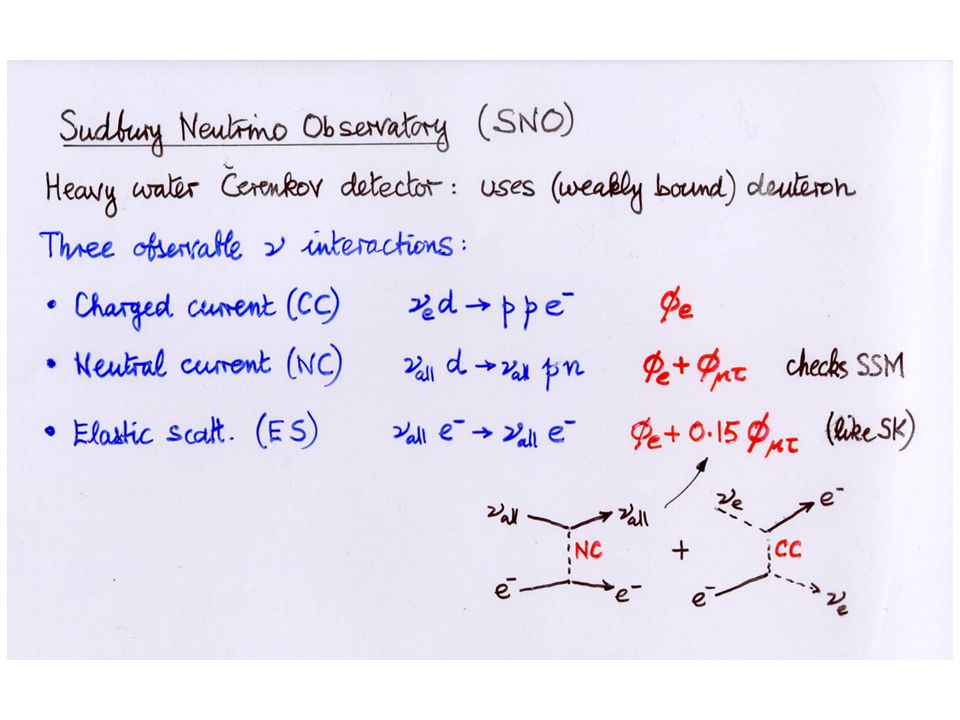 Sudbury Neutrino Observatory (SNO)
Heavy water Čerenkov detector: uses (weakly bound) deuteron
Three observable ν interactions:
• Charged current (CC) νe d → p p e⁻ ϕe
• Neutral current (NC) νall d → νall p n ϕe + ϕμτ checks SSM
• Elastic scatt. (ES) νall e⁻ → νall e⁻ ϕe + 0.15 ϕμτ (like SK)
νall νall νe e⁻
NC + CC
e⁻ e⁻ e⁻ νe